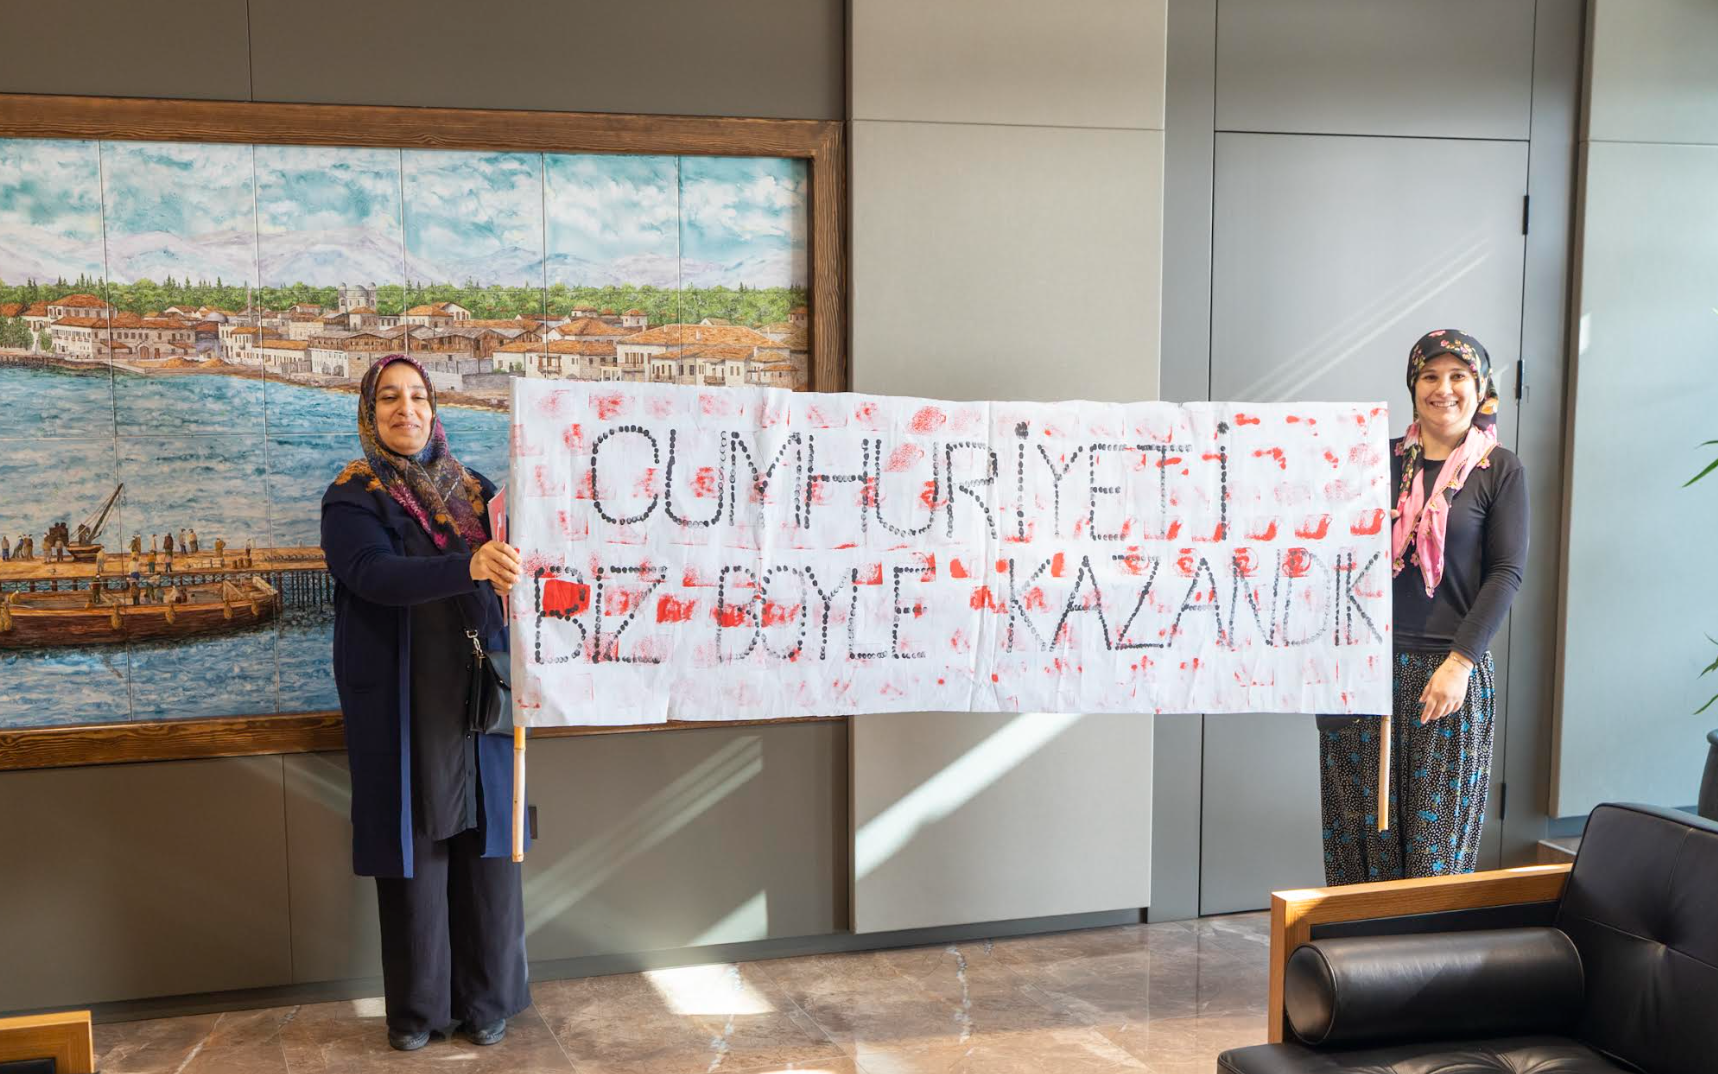 CUMHURİYETİ
BİZ BÖYLE KAZANDIK